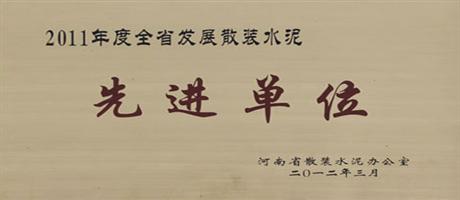 2011年度全省发展散装水泥
先进单位
河南省散装水泥办公室
二〇一二年三月